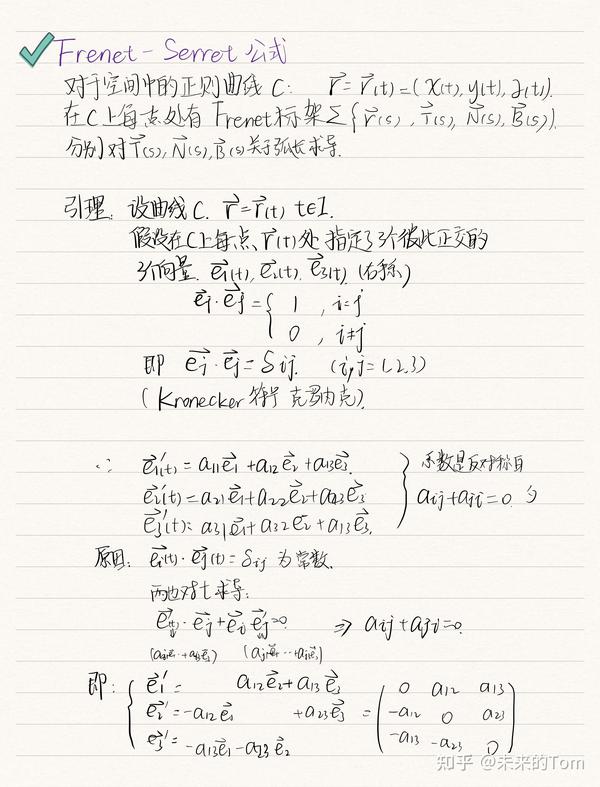 Frenet-Serret 公式
对于空间中的正则曲线 C: r⃗=r⃗(t)=(x(t), y(t), z(t)).
在C上每点处有 Frenet标架 Σ{r⃗(s), T⃗(s), N⃗(s), B⃗(s)}.
分别对T⃗(s), N⃗(s), B⃗(s)关于弧长求导.
引理: 设曲线 C. r⃗=r⃗(t) t∈I.
假设在C上每点、r⃗(t)处 指定了3个彼此正交的
3个向量. e⃗1(t), e⃗2(t). e⃗3(t). (右标.)
e⃗i·e⃗j={ 1 , i=j
0 , i≠j
即 e⃗i·e⃗j=δij. (i,j=1,2,3)
(Kronecker 符号 克罗内克).
∴ e⃗1'(t)=a11e⃗1+a12e⃗2+a13e⃗3. } 系数是反对称的
e⃗2'(t)=a21e⃗1+a22e⃗2+a23e⃗3 aij+aji=0.
e⃗3'(t)=a31e⃗1+a32e⃗2+a13e⃗3.
原因: e⃗i(t)·e⃗j(t)=δij 为常数.
两边对t求导:
e⃗i'·e⃗j+e⃗i·e⃗j'=0. ⇒ aij+aji=0.
即: { e⃗1'= a12e⃗2+a13e⃗3
e⃗2'=-a12e⃗1 +a23e⃗3 = ( 0 a12 a13
-a12 0 a23
e⃗3'= -a13e⃗1-a23e⃗2 -a13 -a23 0 )
知乎 @未来的Tom